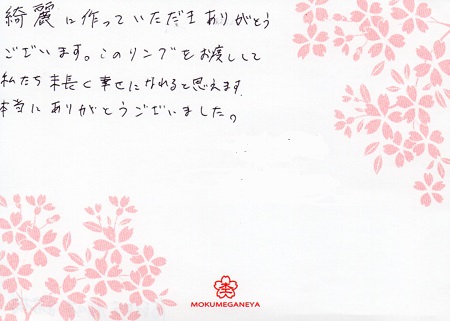 綺麗に作っていただきありがとう
ございます。このリングをお渡しして
私たち末長く幸せになれると思えます。
本当にありがとうございました。
MOKUMEGANEYA